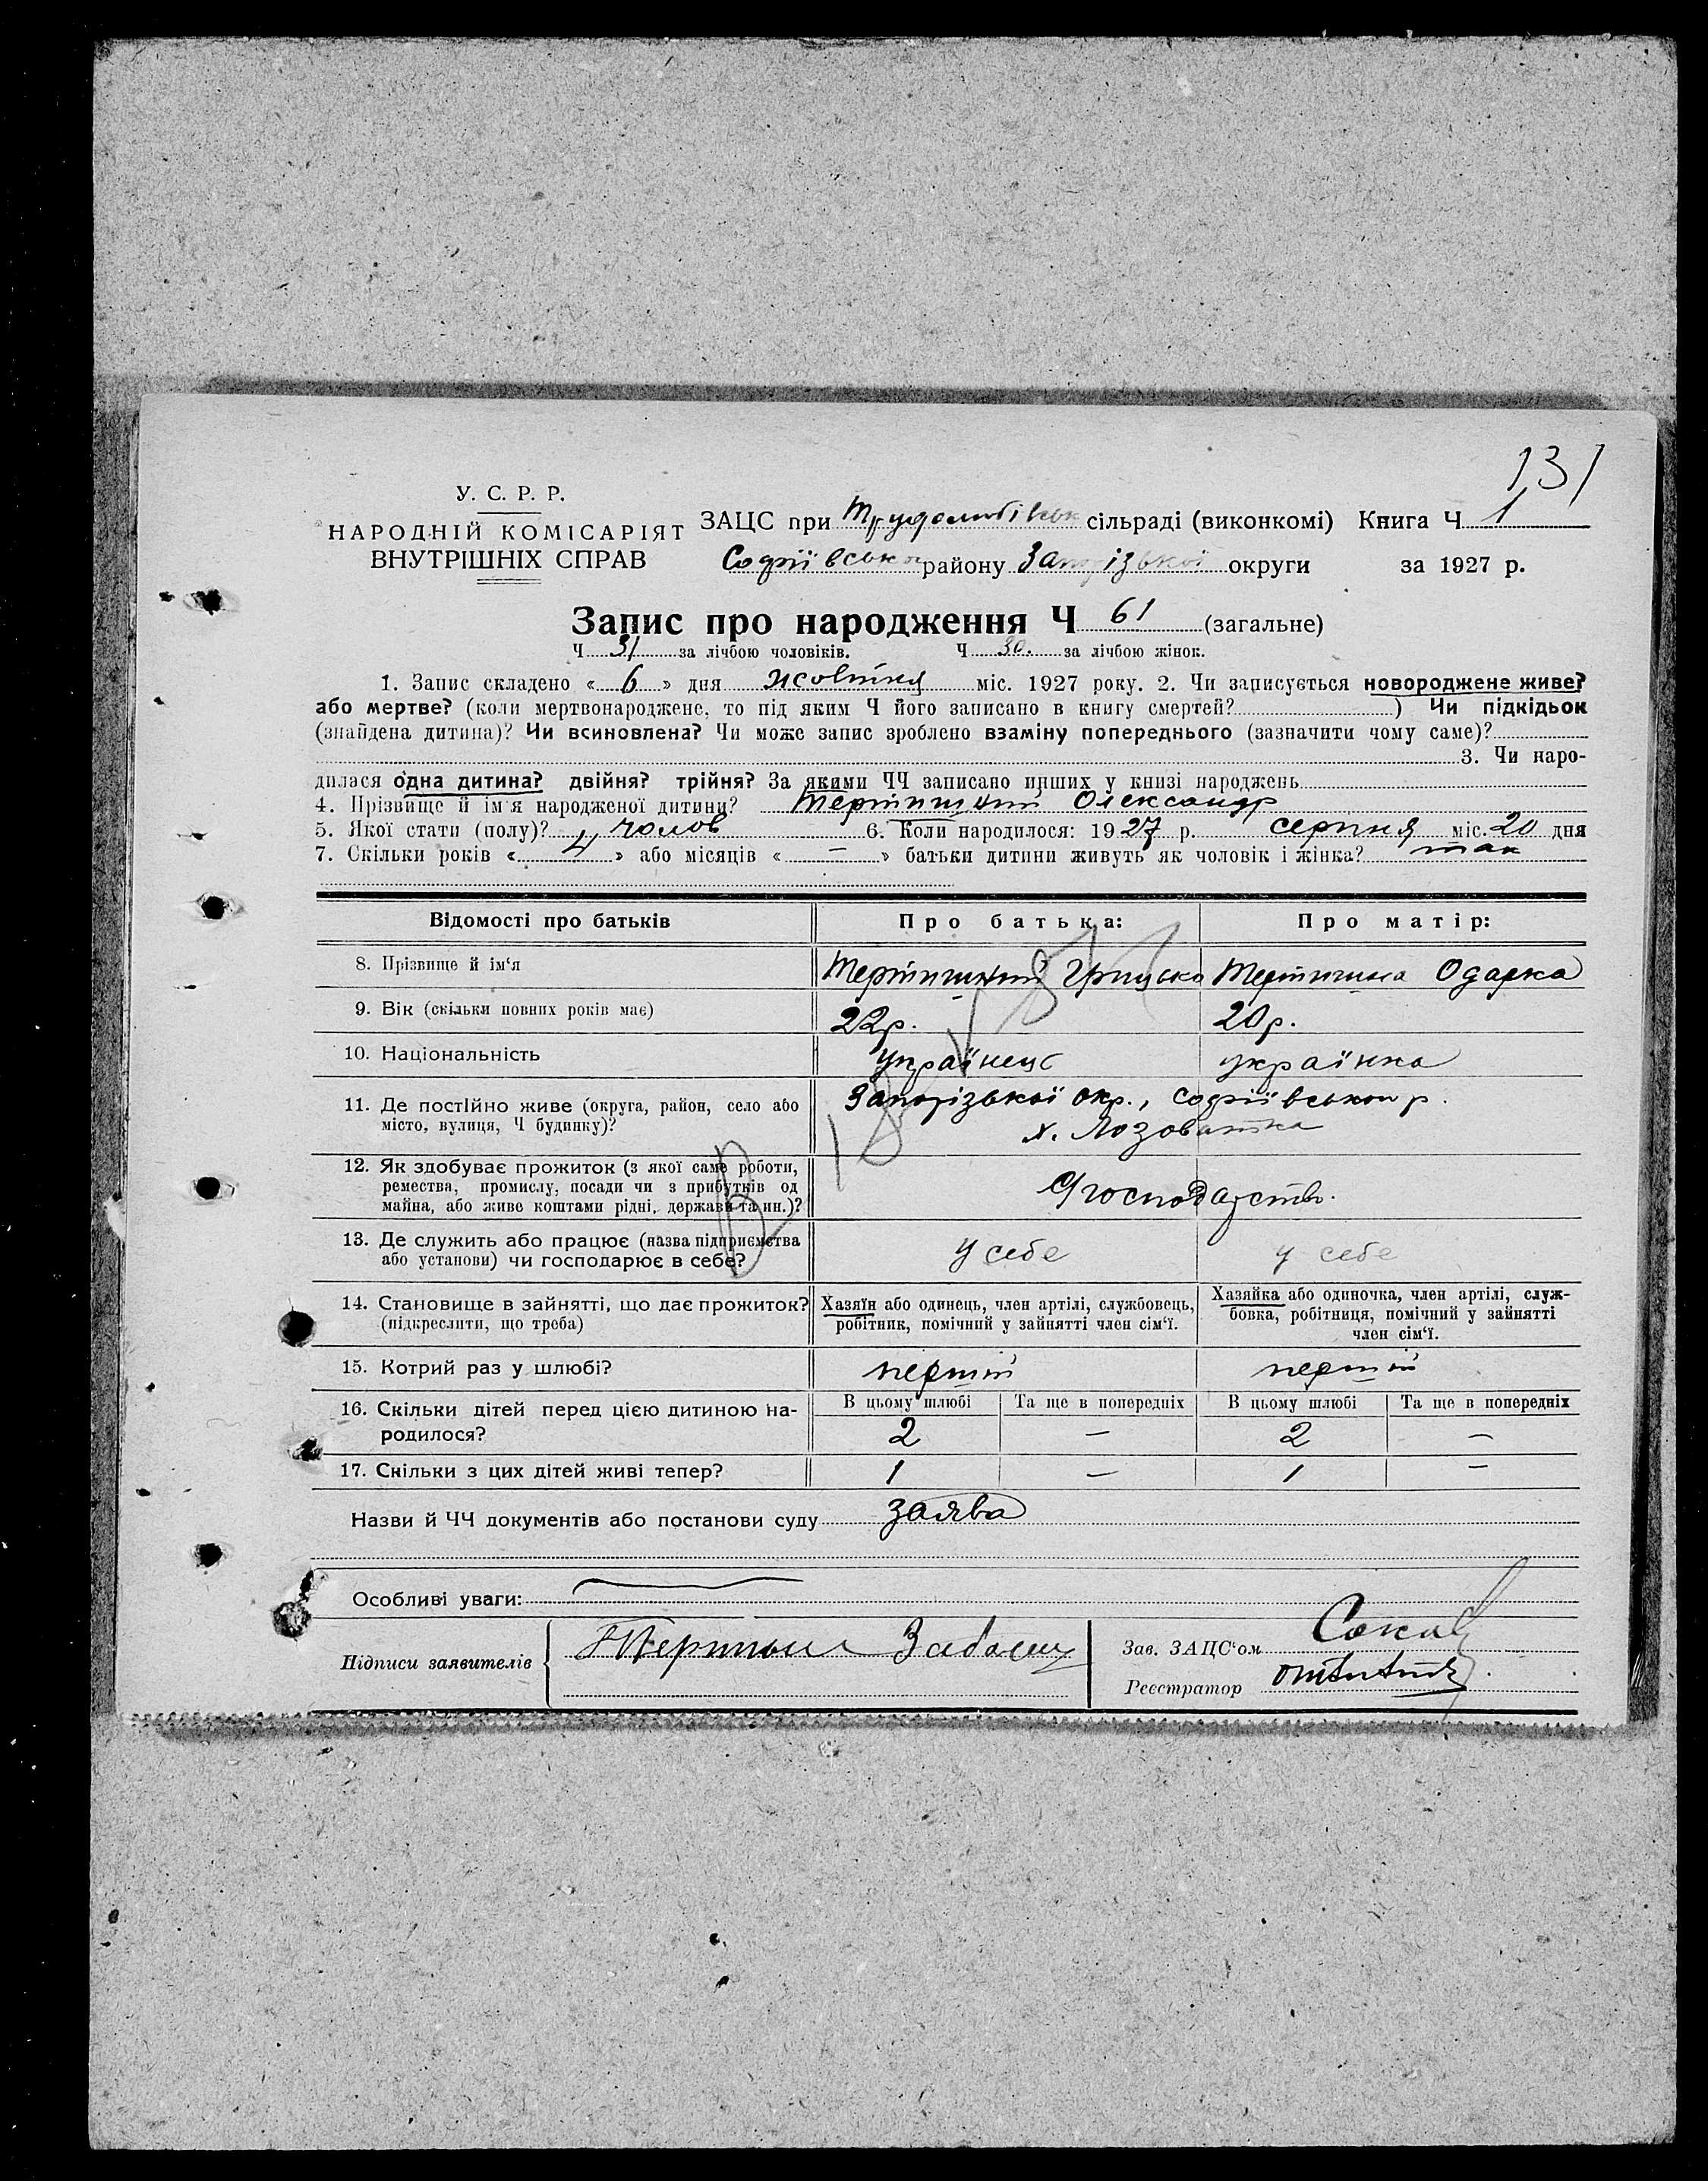 131
У. С. Р. Р.
НАРОДНІЙ КОМІСАРІЯТ
ВНУТРІШНІХ СПРАВ
ЗАЦС при Трудолюбівськ сільраді (виконкомі) Книга Ч 1
Софіївського району Запорізької округи за 1927 р.
Запис про народження Ч 61 (загальне)
Ч 31 за лічбою чоловіків. Ч 30. за лічбою жінок.
1. Запис складено « 6 » дня жовтня міс. 1927 року. 2. Чи записується новороджене живе?
або мертве? (коли мертвонароджене, то під яким Ч його записано в книгу смертей? ) Чи підкідьок
(знайдена дитина)? Чи всиновлена? Чи може запис зроблено взаміну попереднього (зазначити чому саме)?
3. Чи наро-
дилася одна дитина? двійня? трійня? За якими ЧЧ записано инших у книзі народжень
4. Прізвище й ім'я народженої дитини? Тертишний Олександр
5. Якої стати (полу)? чолов 6. Коли народилося: 1927 р. серпня міс. 20 дня
7. Скільки років « 4 » або місяців « — » батьки дитини живуть як чоловік і жінка? так
Відомості про батьків Про батька: Про матір:
8. Прізвище й ім'я Тертишний Грицько Тертишна Одарка
9. Вік (скільки повних років має) 22р. 20р.
10. Національність українець українка
11. Де постійно живе (округа, район, село або
місто, вулиця, Ч будинку)?
Запорізької окр., Софіївського р.
х. Лозоватка
12. Як здобуває прожиток (з якої саме роботи,
ремества, промислу, посади чи з прибутків од
майна, або живе коштами рідні, держави та ин.)?
13. Де служить або працює (назва підприємства
або установи) чи господарює в себе?
у себе у себе
14. Становище в зайнятті, що дає прожиток?
(підкреслити, що треба)
Хазяїн або одинець, член артілі, службовець,
робітник, помічний у зайнятті член сім'ї.
Хазяйка або одиночка, член артілі, служ-
бовка, робітниця, помічний у зайнятті
член сім'ї.
15. Котрий раз у шлюбі? перший перший
16. Скільки дітей перед цією дитиною на-
родилося?
В цьому шлюбі Та ще в попередніх В цьому шлюбі Та ще в попередніх
2 — 2 —
17. Скільки з цих дітей живі тепер? 1 — 1 —
Назви й ЧЧ документів або постанови суду заява
Особливі уваги:
Підписи заявителів
Зав. ЗАЦС'ом
Реєстратор